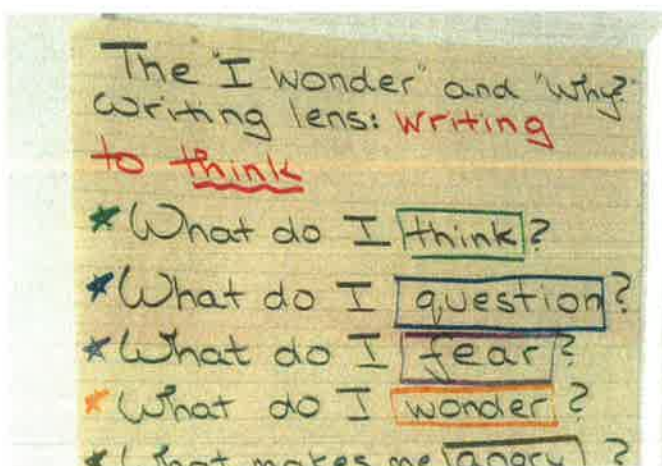 The "I wonder" and "Why?"
writing lens: writing
to think
*What do I think?
*What do I question?
*What do I fear?
*What do I wonder?
*What makes me angry?